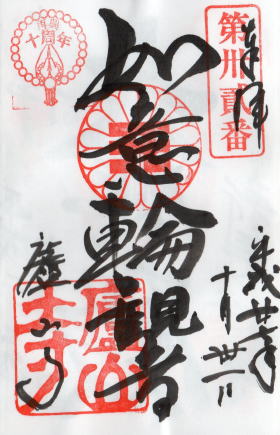 第卅貳番
奉拝
如意輪観音
平成廿年
十月卅一日
廬山寺
十周年
廬山寺